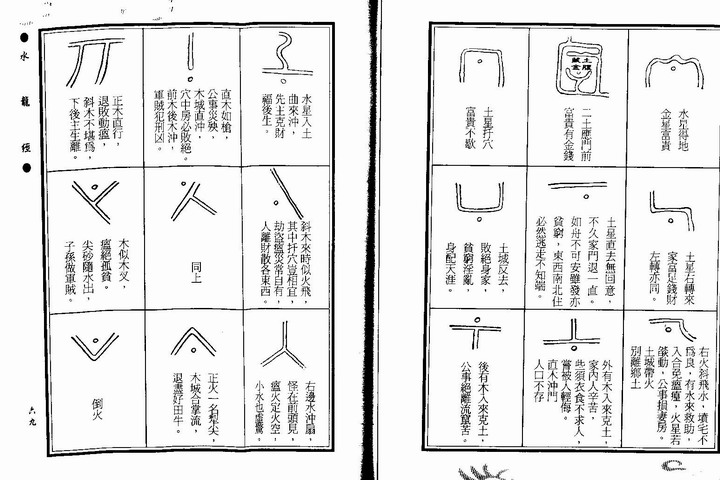 水星得地
金星富貴
土腹藏金
二土應門前
富貴有金錢
土星扦穴
富貴不歇
土星右轉來
家富足錢財
左轉亦同。
土星直去無回意，
不久家門退一直。
如舟不可安雖發亦
貧窮，東西南北住
必然逃走不知端。
土城反去，
敗絕身家，
貧窮淫亂，
身配天涯。
右火斜飛水，墳宅不
為良，有水來救助，
入合免瘟瘽，火星若
燄動，公事損妻房。
土城帶火
別離鄉土
外有木入來克土，
家內人辛苦，
些須衣食不求人，
嘗被人輕侮。
直木沖門
人口不存
後有木入來克土，
公事絕離流竄苦。
水星入土
曲來沖，
先主克財
福後生。
直木如槍，
公事災殃，
木城直沖，
穴中房必敗絕。
前木後木沖，
軍賊犯刑凶。
正木直行，
退敗動瘟，
斜木不堪為，
下後主生離。
斜木來時似火飛
其中扦穴豈相宜，
劫盜瘟災常自有，
人離財散各東西。
同上
木似木叉，
瘟絕孤貧。
尖砂隨水出，
子孫做軍賊。
右邊水沖扇，
怪在前頭見，
瘟火定火空，
小水也虛驚。
正火一名犁尖，
木城合掌流，
退盡好田牛。
倒火
水龍經
六九